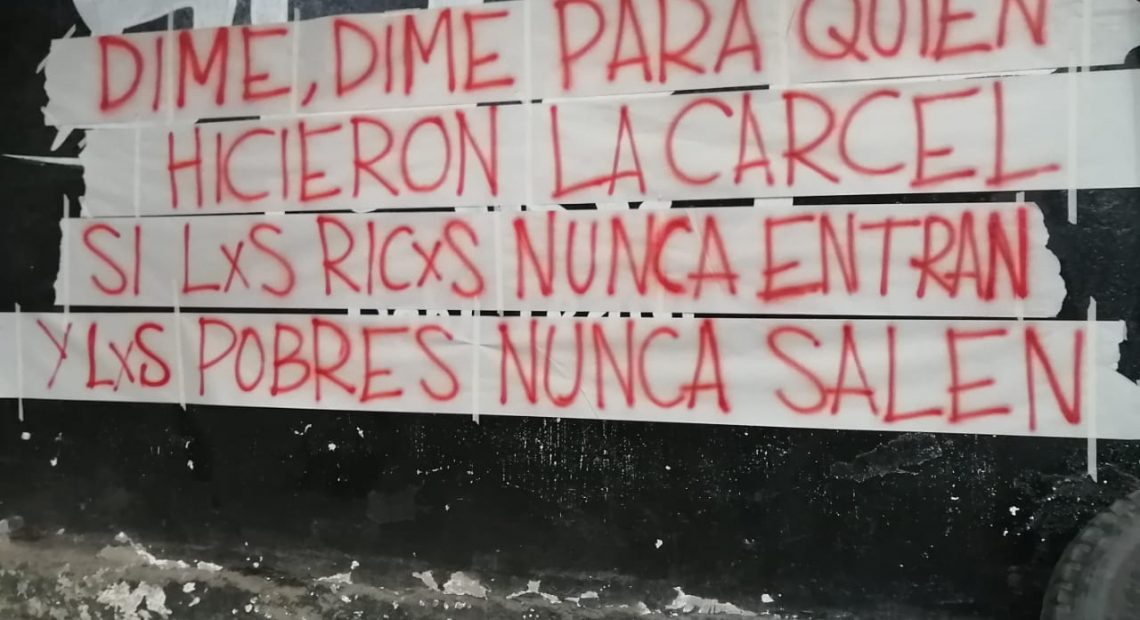 DIME, DIME PARA QUIEN
HICIERON LA CARCEL
SI LxS RICxS NUNCA ENTRAN
Y LxS POBRES NUNCA SALEN